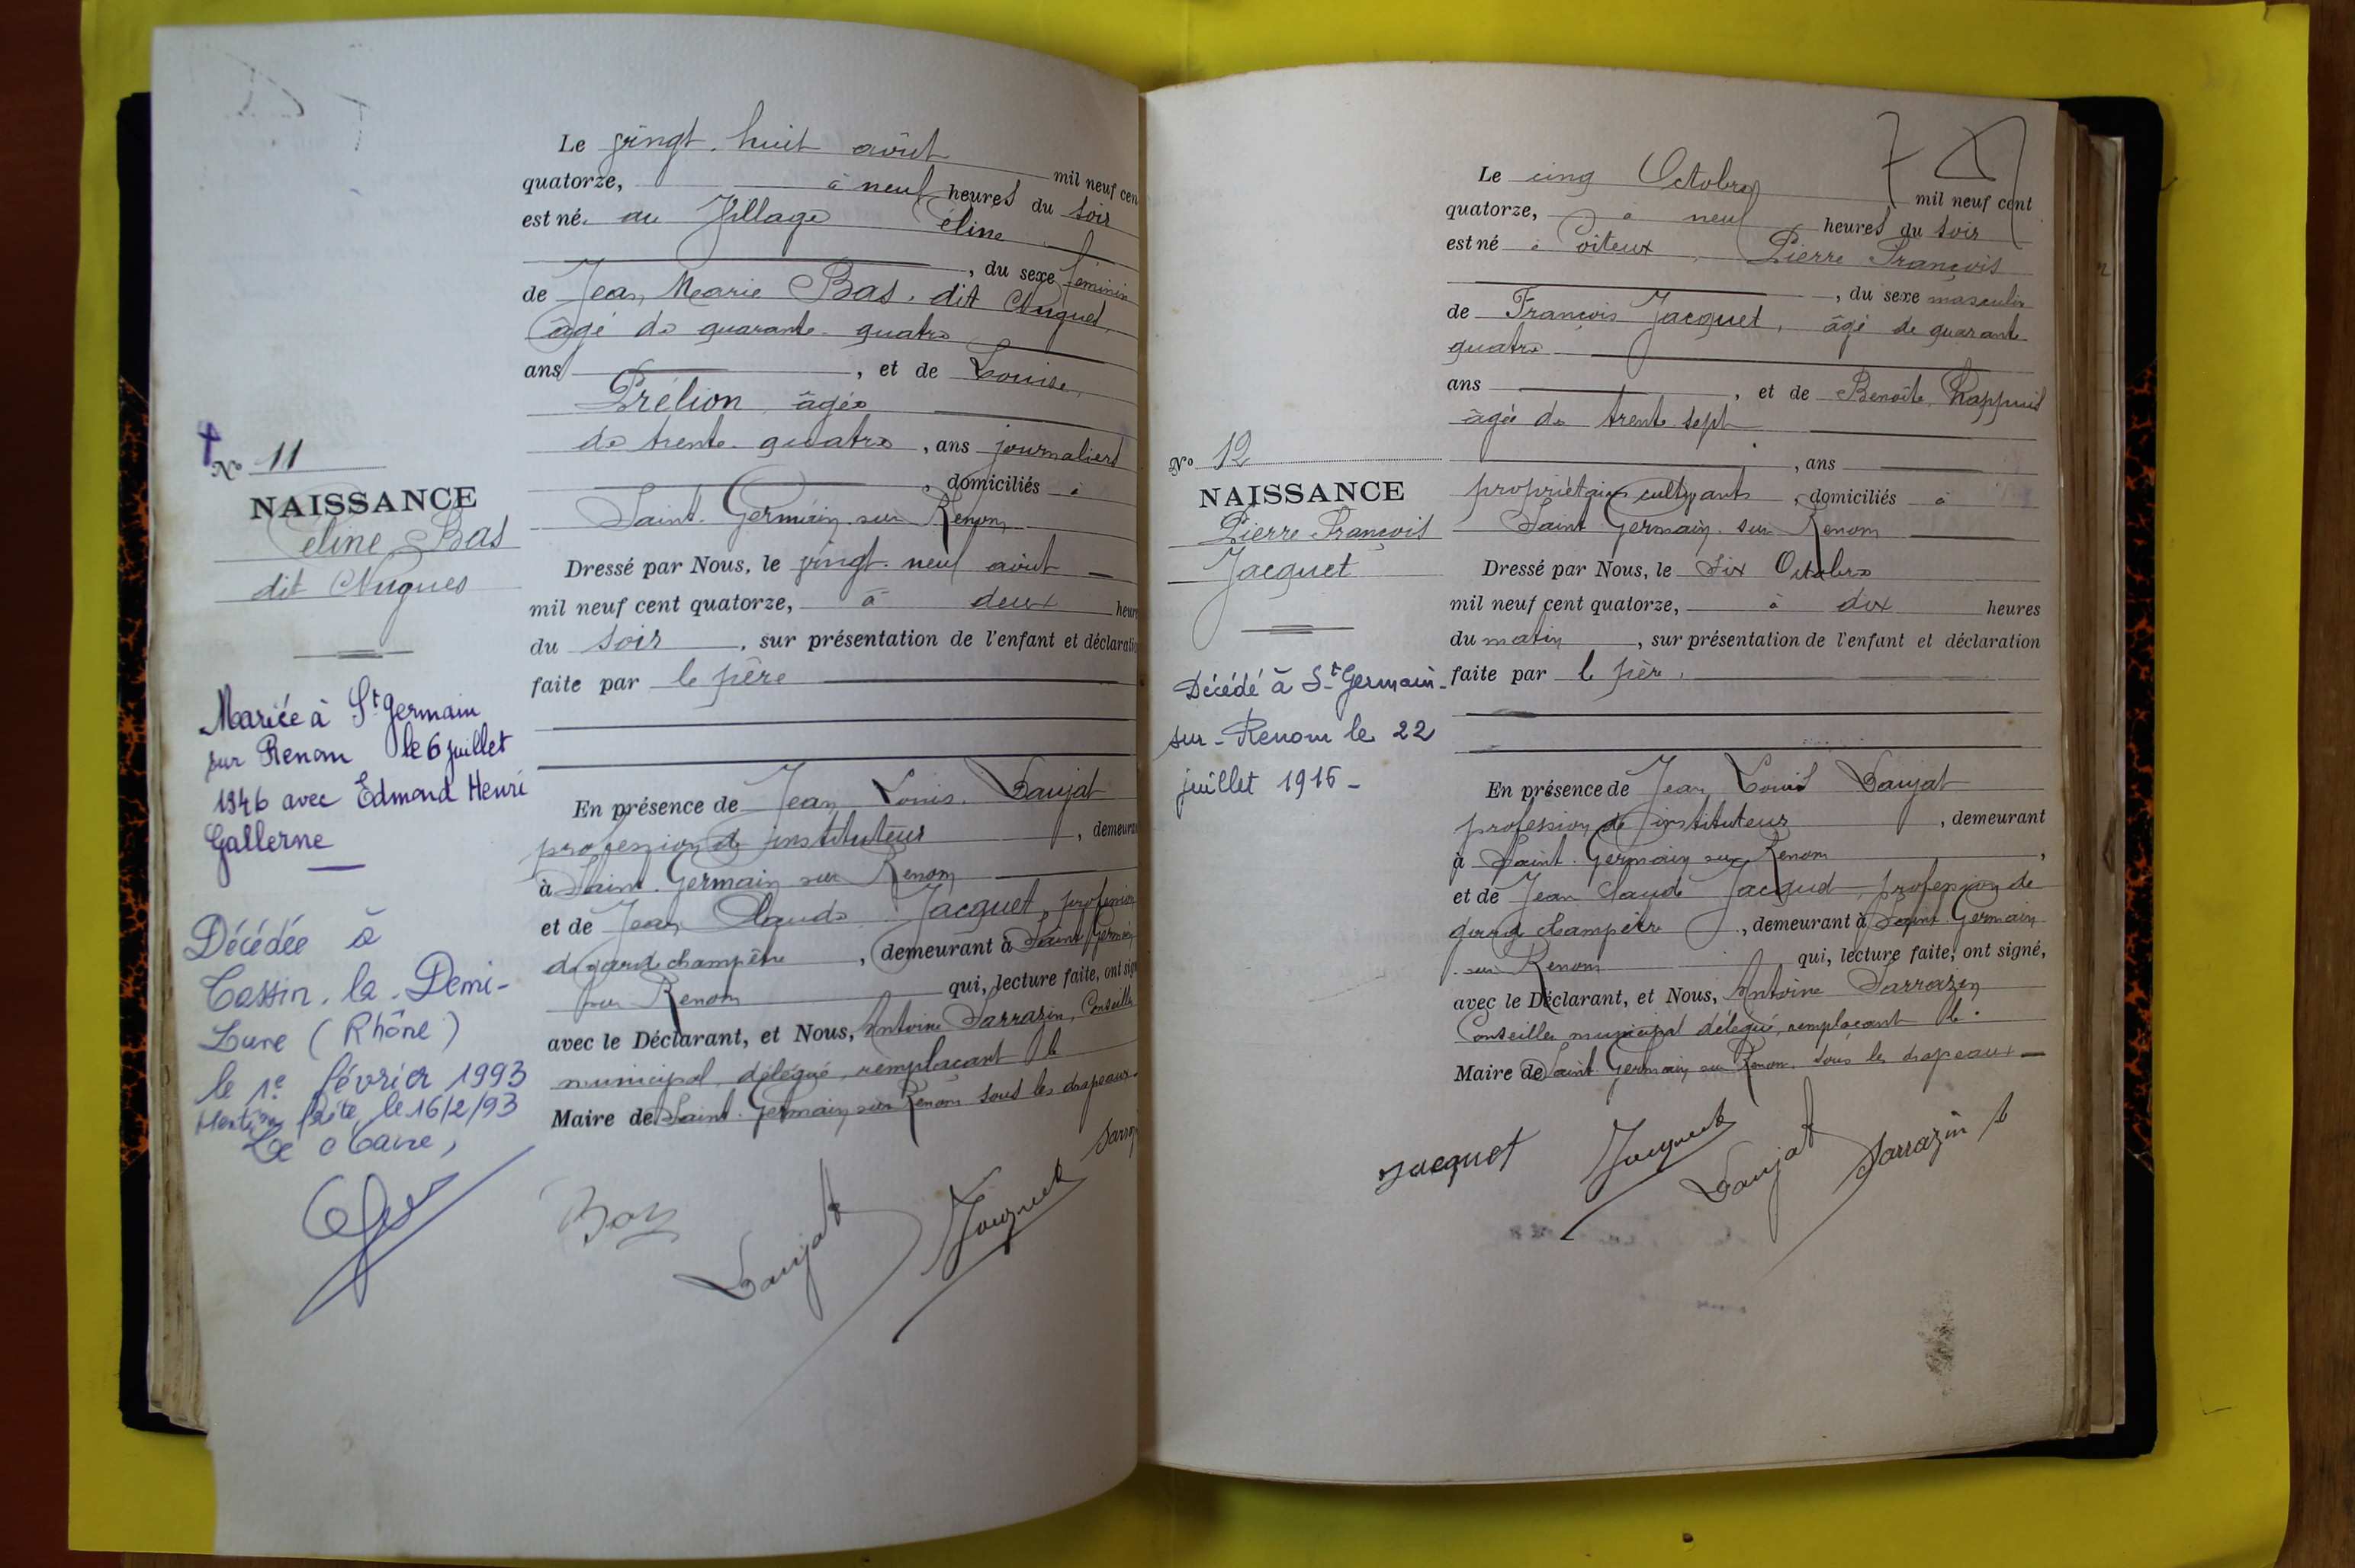 Le vingt-huit août mil neuf cen
quatorze, à neuf heures du soir
est né. au Village Céline
, du sexe féminin
de Jean Marie Bas. dit Nugues,
âgé de quarante-quatre
ans , et de Louise,
Prélion, âgée
de trente-quatre , ans journaliers
, domiciliés à
Saint-Germain-sur-Renom
Dressé par Nous, le vingt-neuf août
mil neuf cent quatorze, à deux heure
du soir , sur présentation de l'enfant et déclaratio
faite par le père
En présence de Jean Louis. Laujat
profession de instituteur , demeura
à Saint-Germain sur Renom
et de Jean Claude Jacquet, profession
de garde champêtre , demeurant à Saint Germain
sur Renom qui, lecture faite, ont sign
avec le Déclarant, et Nous, Antoine Sarrazin, Conseille
municipal, délégué, remplaçant le
Maire de Saint-Germain sur Renom sous les drapeaux.
Bas
Laujat
Jacquet
Sarraz
N° 11
NAISSANCE
Céline Bas
dit Nugues
Mariée à St Germain
sur Renom le 6 juillet
1946 avec Edmond Henri
Gallerne
Décédée à
Tassin-la-Demi-
Lune (Rhône)
le 1e février 1993
Mention faite, le 16/2/93
Le Maire,
Le cinq Octobre mil neuf cent
quatorze, à neuf heures du soir
est né à Poiteux, Pierre François
, du sexe masculin
de François Jacquet, âgé de quarante
quatre
ans , et de Benoîte Chappuis
âgée de trente sept
, ans
propriétaires cultivants , domiciliés à
Saint-Germain-sur-Renom
Dressé par Nous, le six Octobre
mil neuf cent quatorze, à dix heures
du matin , sur présentation de l'enfant et déclaration
faite par le père.
En présence de Jean Louis Laujat
profession de instituteur , demeurant
à Saint-Germain sur Renom ,
et de Jean Claude Jacquet, profession de
garde champêtre , demeurant à Saint Germain
sur Renom qui, lecture faite, ont signé,
avec le Déclarant, et Nous, Antoine Sarrazin
Conseiller municipal délégué, remplaçant le.
Maire de Saint-Germain sur Renom. sous les drapeaux
Jacquet
Jacquet
Laujat
Sarrazin
N° 12
NAISSANCE
Pierre François
Jacquet
Décédé à St-Germain-
sur-Renom le 22
juillet 1916-